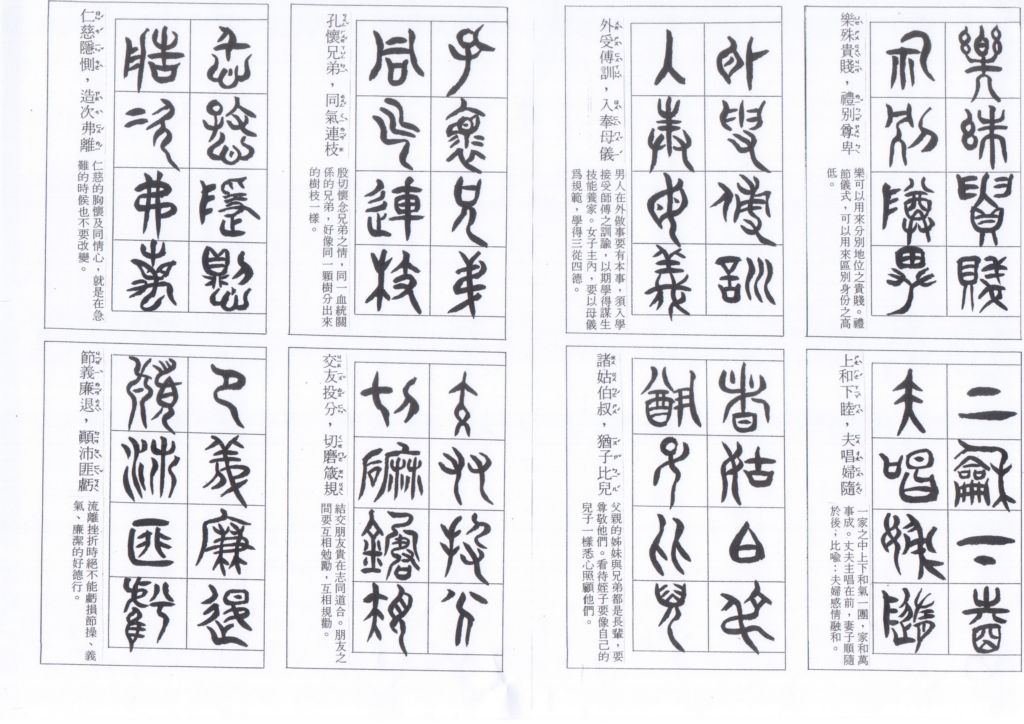 樂殊貴賤
禮別尊卑
樂殊貴賤，禮別尊卑
樂可以用來分別地位之貴賤。禮
節儀式，可以用來區別身份之高
低。
上和下睦
夫唱婦隨
上和下睦，夫唱婦隨
一家之中上下和氣一團，家和萬
事成。丈夫主唱在前，妻子順隨
於後；比喻：夫婦感情融和。
外受傅訓
入奉母儀
外受傅訓，入奉母儀
男人在外做事要有本事，須入學
接受師傅之訓諭，以期學得謀生
技能養家。女子主內，要以母儀
爲規範，學得三從四德。
諸姑伯叔
猶子比兒
諸姑伯叔，猶子比兒
父親的姊妹與兄弟都是長輩，要
尊敬他們。看待姪子要像自己的
兒子一樣悉心照顧他們。
孔懷兄弟
同氣連枝
孔懷兄弟，同氣連枝
殷切懷念兄弟之情，同一血統關
係的兄弟，好像同一顆樹分出來
的樹枝一樣。
交友投分
切磨箴規
交友投分，切磨箴規
結交朋友貴在志同道合。朋友之
間要互相勉勵，互相規勸。
仁慈隱惻
造次弗離
仁慈隱惻，造次弗離
仁慈的胸懷及同情心，就是在急
難的時候也不要改變。
節義廉退
顛沛匪虧
節義廉退，顛沛匪虧
流離挫折時絕不能虧損節操、義
氣、廉潔的好德行。